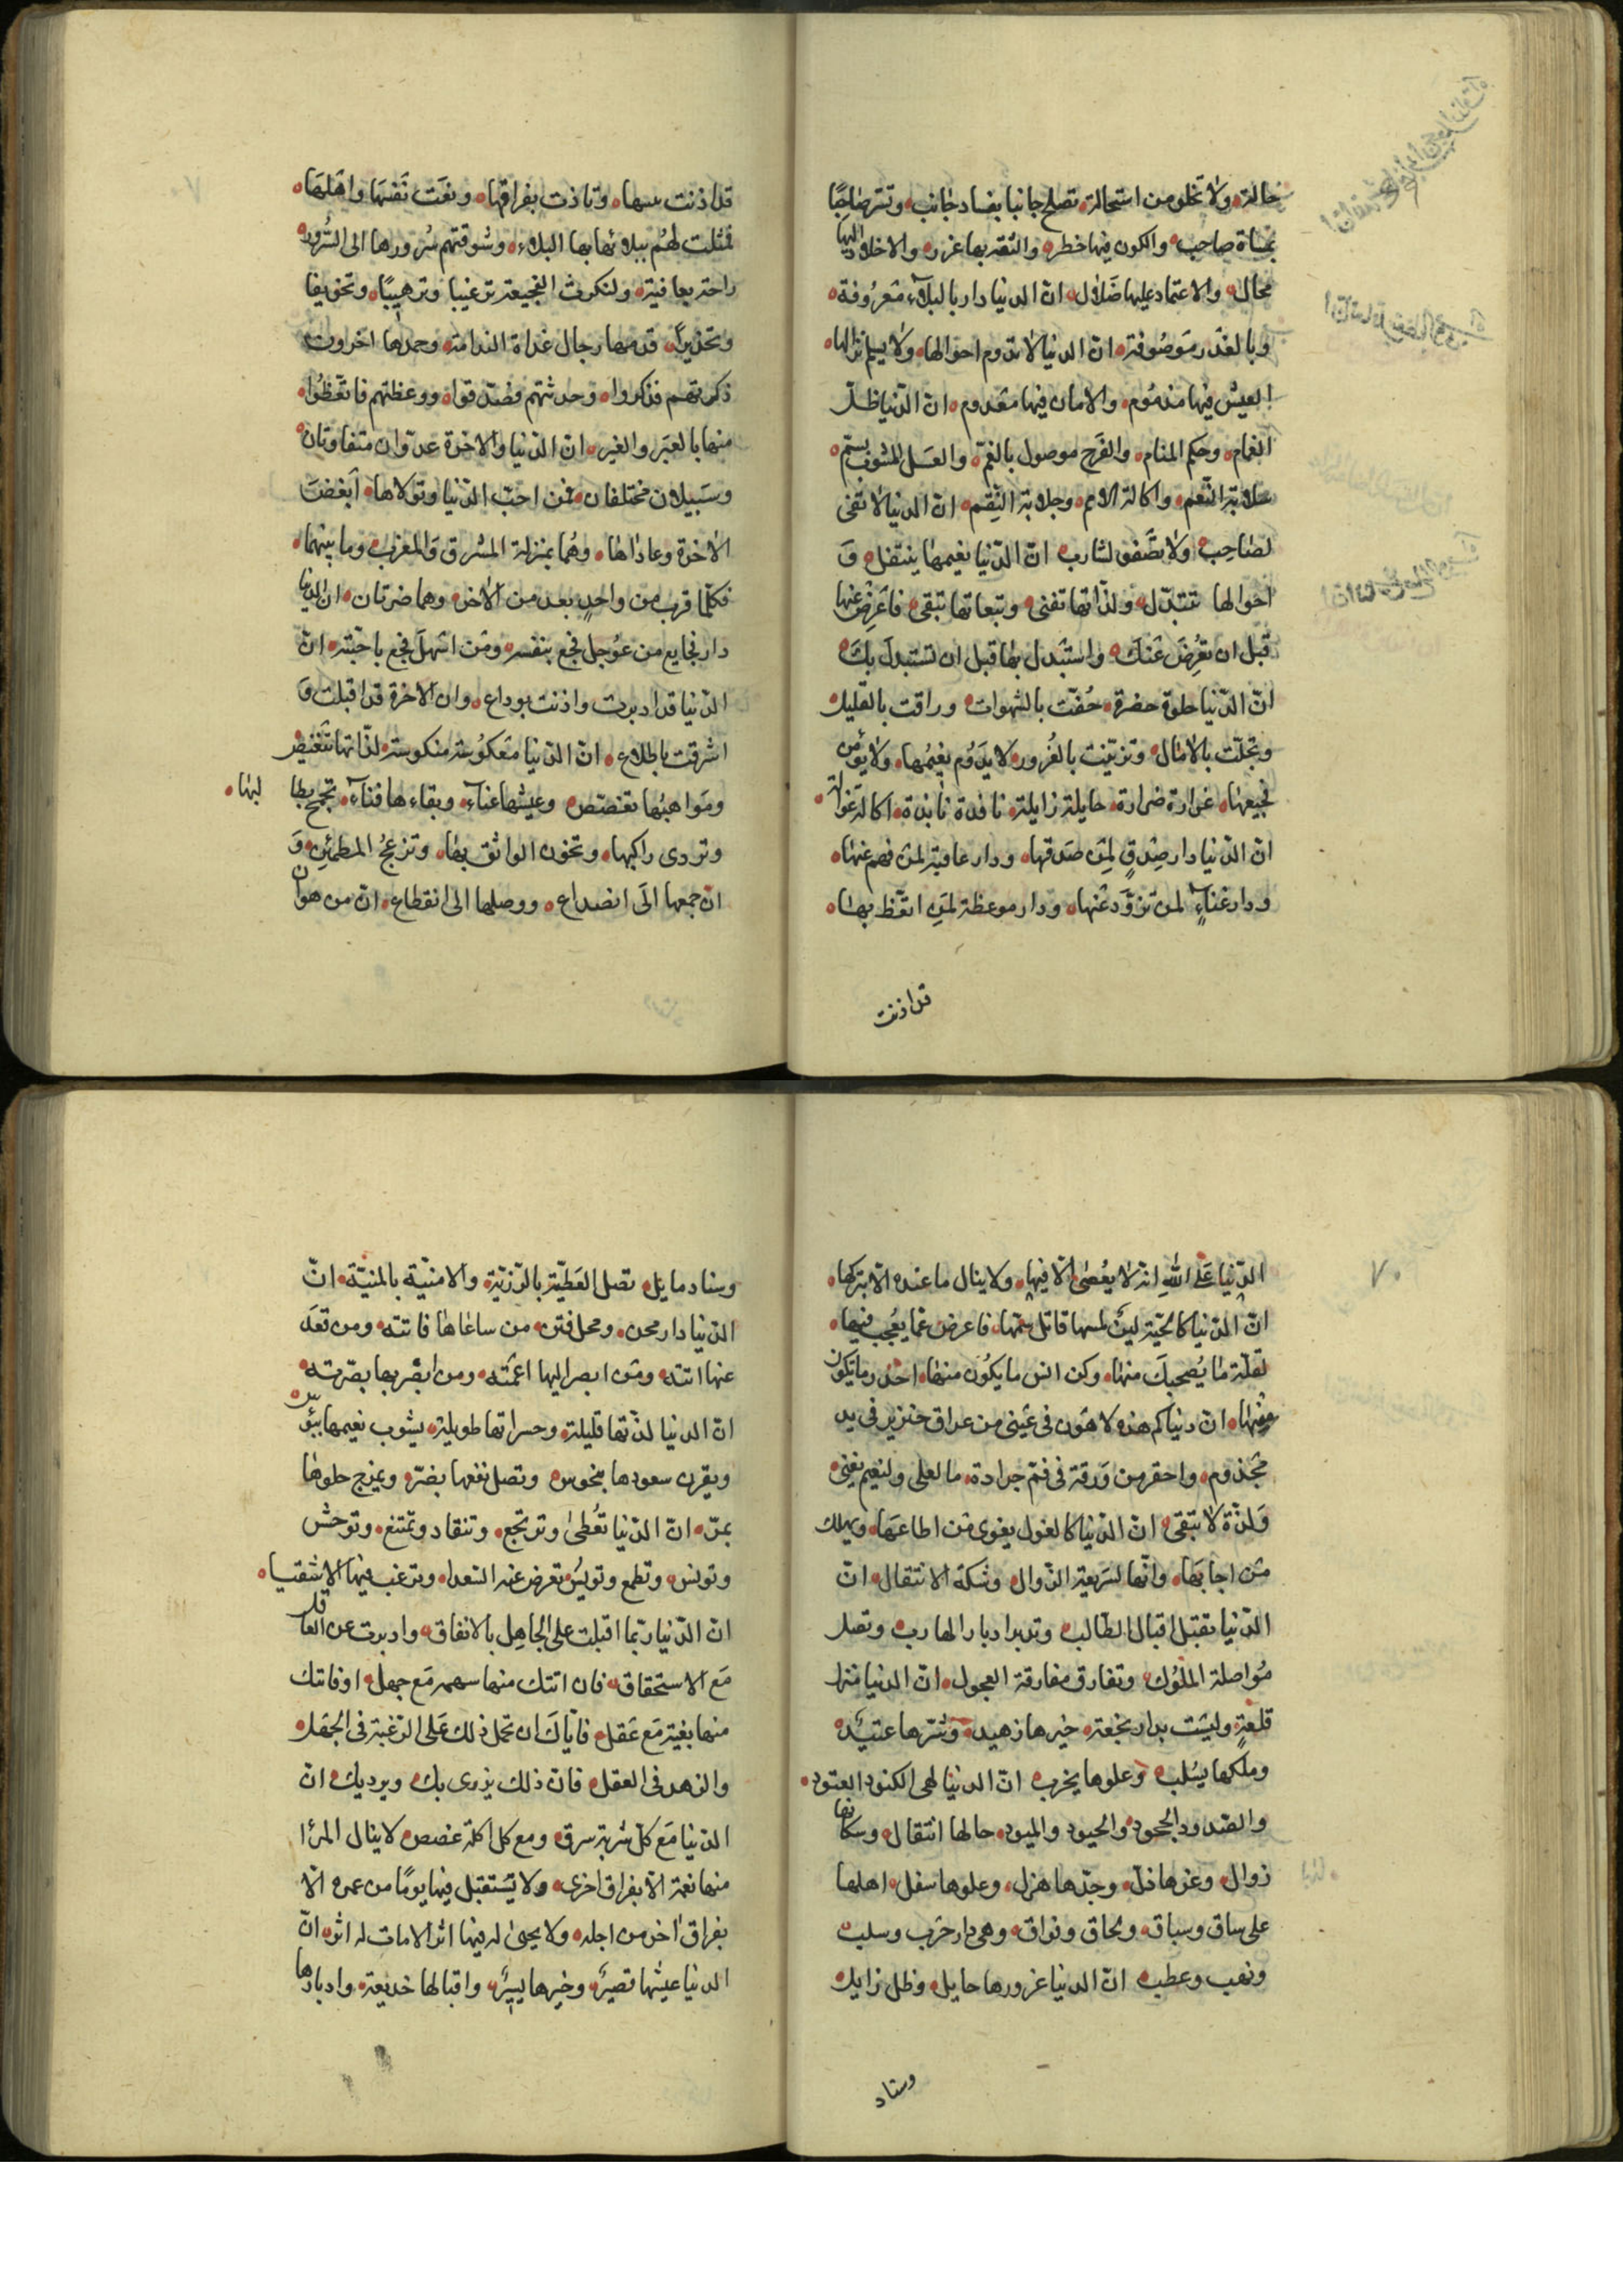 حالة ولا تخلو من استحالة تصلح جانبا بفساد جانب وتسر صاحبًا
بمساة صاحب والكون فيها خطر والثقة بها غرور والاخلاد اليها
محال والاعتماد عليها ضلال ان الدنيا دار بالبلاء معروفة
وبالغدر موصوفة ان الدنيا لا تدوم احوالها ولا يسلم نزالها
العيش فيها مذموم والامان فيها معدوم ان الدنيا ظل
الغمام وحكم المنام والفرح موصول بالغم والعسل المشوب بسم
سلابة النعم واكالة الامم وجلابة النقم ان الدنيا لا تفى
لصاحب ولا تصفو لشارب ان الدنيا نعيمها ينتقل و
احوالها تتبدل ولذاتها تفنى وتبعاتها تبقى فاعرض عنها
قبل ان تعرض عنك واستبدل بها قبل ان تستبدل بك
ان الدنيا حلوة خضرة حفت بالشهوات وراقت بالقليل
وتحلت بالامال وتزينت بالغرور لا يدوم نعيمها ولا يؤمن
فجيعتها غرارة ضرارة حايلة زايلة نافدة بائدة اكالة غوالة
ان الدنيا دار صدق لمن صدقها ودار عافية لمن فهم عنها
ودار غناء لمن تزود عنها ودار موعظة لمن اتعظ بها
قد اذنت
قد اذنت ببينها وتاذت بفراقها ونعت نفسها واهلها
فمثلت لهم ببلائها بها البلاء وشوقتهم بسرورها الى السرور
راحة بعافية ولنكرت الفجيعة ترغيبا وترهيبًا وتخويفا
وتحذيرا فذمها رجال غداة الندامة وحمدها اخرون
ذكرتهم فذكروا وحدثتهم فصدقوا ووعظتهم فاتعظوا
منها بالعبر والغير ان الدنيا والاخرة عدوان متفاوتان
وسبيلان مختلفان فمن احب الدنيا وتولاها ابغض
الاخرة وعاداها وهما بمنزلة المشرق والمغرب وما بينهما
فكلما قرب من واحد بعد من الاخر وهما ضرتان ان الدنيا
دار فجايع من عوجل فجع بنفسه ومن امهل فجع باحبته ان
الدنيا قد ادبرت واذنت بوداع وان الاخرة قد اقبلت و
اشرقت باطلاع ان الدنيا معكوسة منكوسة لذاتها تنغيص
ومواهبها تغصص وعيشها عناء وبقاءها فناء تجمح بطالبها
وتردى راكبها وتخون الواثق بها وتزعج المطمئن و
ان جمعها الى انصداع ووصلها الى انقطاع ان من هوان
٧٠
الدنيا على الله انه لا يعصى الا فيها ولا ينال ما عنده الا بتركها
ان الدنيا كالحية لين لمسها قاتل سمها فاعرض عما يعجب فيها
لقلة ما يصحبك منها وكن انس ما يكون منها احذر ما يكون
منها ان دنياكم هذه لاهون فى عينى من عراق خنزير فى يد
مجذوم واحقر من ورقة فى فم جرادة ما لعلى ولنعيم يفنى
ولذة لا تبقى ان الدنيا كالغول يغوى من اطاعها ويهلك
من اجابها وانها لسريعة الزوال وشكة الانتقال ان
الدنيا تقبل اقبال الطالب وتدبر ادبار الهارب وتصل
مواصلة الملوك وتفارق مفارقة العجول ان الدنيا منزل
قلعة وليست بدار نجعة خيرها زهيد وشرها عتيد
وملكها يسلب وعلوها يخرب ان الدنيا لهى الكنود العنود
والصدود الجحود والحيود والميود حالها انتقال وسكانها
زوال وعزها ذل وجدها هزل وعلوها سفل اهلها
على ساق وسباق ولحاق وفراق وهى دار حرب وسلب
ونهب وعطب ان الدنيا غرورها حايل وظل زايل
وسناد
وسناد مايل تصل العطية بالرزية والامنية بالمنية ان
الدنيا دار محن ومحل فتن من ساعاها فاتته ومن قعد
عنها اتته ومن ابصر اليها اعمته ومن ابصر بها بصرته
ان الدنيا لذتها قليلة وحسراتها طويلة يشوب نعيمها ببؤس
ويقرن سعودها بنحوس وتصل نفعها بضر ويمزج حلوها
بمر ان الدنيا تعطى وترتجع وتنقاد وتمتنع وتوحش
وتونس وتطمع وتويس تعرض عنه السعدا وترغب فيها الاشقيا
ان الدنيا ربما اقبلت على الجاهل بالاتفاق وادبرت عن العاقل
مع الاستحقاق فان اتتك منها سهم مع جهل او فاتتك
منها بغية مع عقل فاياك ان تحمل ذلك على الرغبة فى الجهل
والزهد فى العقل فان ذلك يزرى بك ويرديك ان
الدنيا مع كل شربة سرق ومع كل اكلة غصص لا ينال المرا
منها نعمة الا بفراق اخرى ولا يستقبل فيها يومًا من عمره الا
بفراق اخر من اجله ولا يحيى له فيها اثر الا مات له اثر ان
الدنيا عيشها قصير وخيرها يسير واقبالها خديعة وادبارها